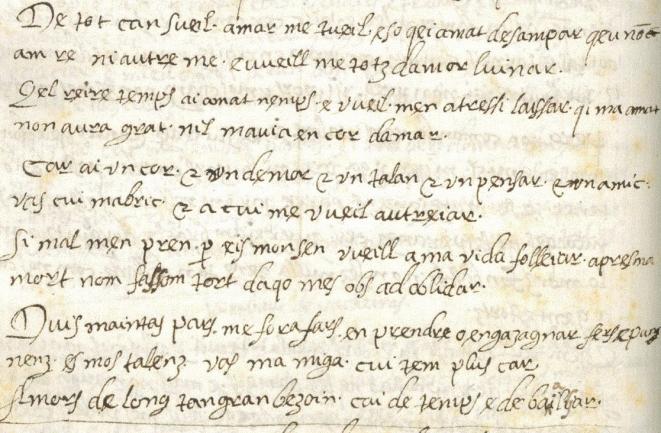 De tot can sueil · amar me tueil · e so qei amat desampar qeu nō c
am re ni autre me · e vueill me totz damor luinar ·
Qel reire temps ai amat nemps · e vueil · men atressi laissar · qi ma amat
non aura grat · nil mauia en cor damar ·
Car ai vn cor · & vn demor & vn talan & vn pensar · & vn amic ·
vas cui mabric · & a cui me vueil autreiar ·
Si mal men pren · ꝑ eis mon sen vueill a ma vida folleiar · apres ma
mort nom fassom tort daqo mes obs ad oblidar ·
Duis maintas pars · me fora fars · en prendre o en gazagnar fers e pus
nenz · es mos talenz · vas ma miga · cui tem plus car
si mors de long tan gran bezoin · cai de temps e de